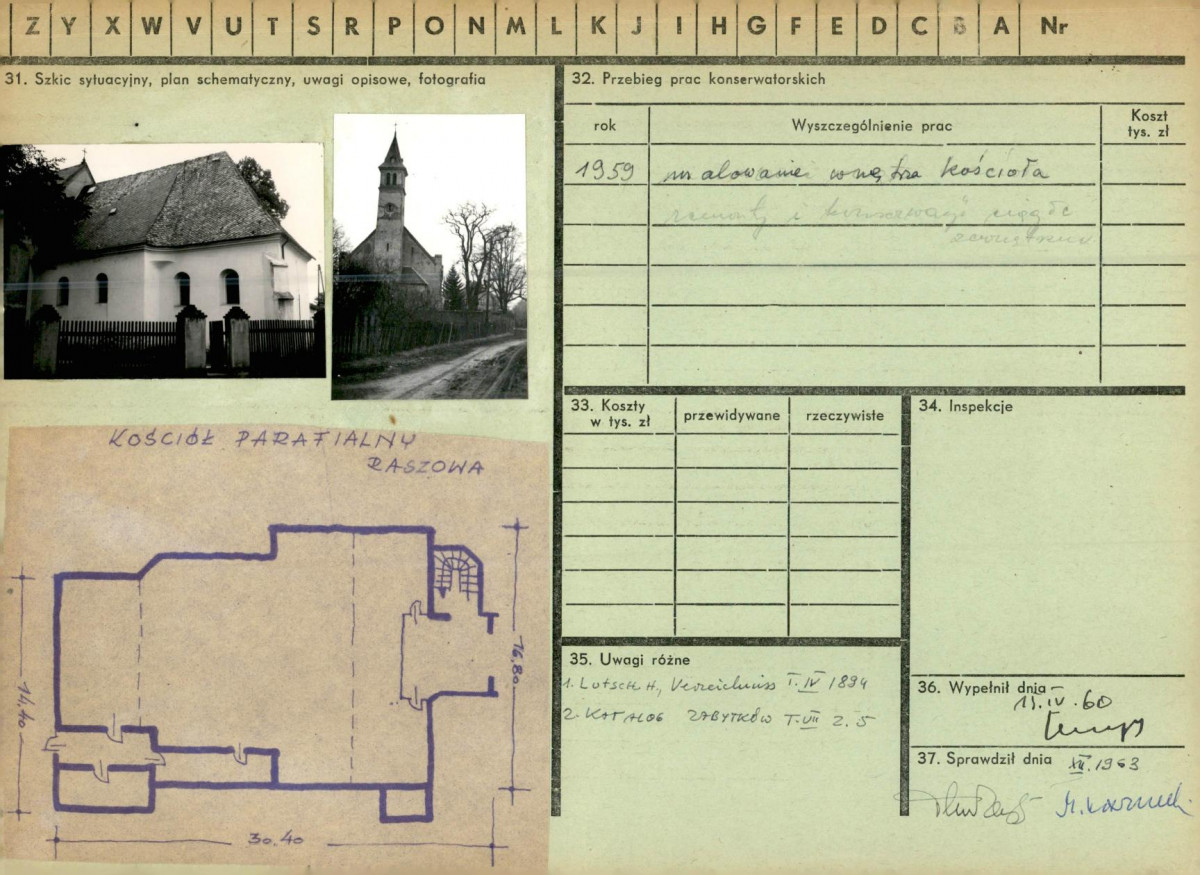 Z Y X W V U T S R P O N M L K J I H G F E D C B A Nr
31. Szkic sytuacyjny, plan schematyczny, uwagi opisowe, fotografia
KOŚCIÓŁ PARAFIALNY
RASZOWA
14.40
16.80
30.40
32. Przebieg prac konserwatorskich
rok
Wyszczególnienie prac
Koszt
tys. zł
1959 malowanie wnętrza kościoła
remonty i konserwacje ciągłe
33. Koszty
w tys. zł
przewidywane
rzeczywiste
34. Inspekcje
35. Uwagi różne
1. Lutsch H., Verzeichniss T. IV 1894
2. KATALOG ZABYTKÓW T. VII z. 5
36. Wypełnił dnia
15. IV. 60
37. Sprawdził dnia XII. 1963